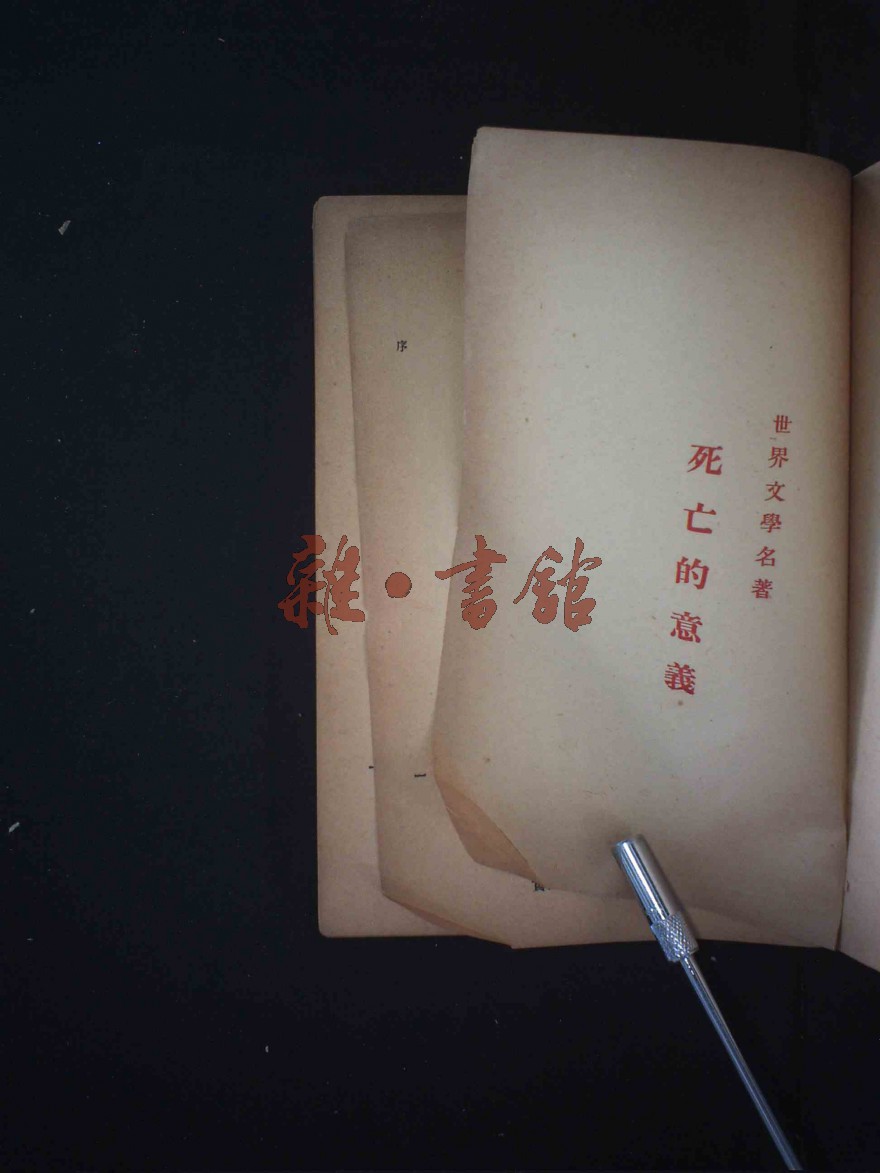 世界文學名著
死亡的意義
序
一
雜·書館